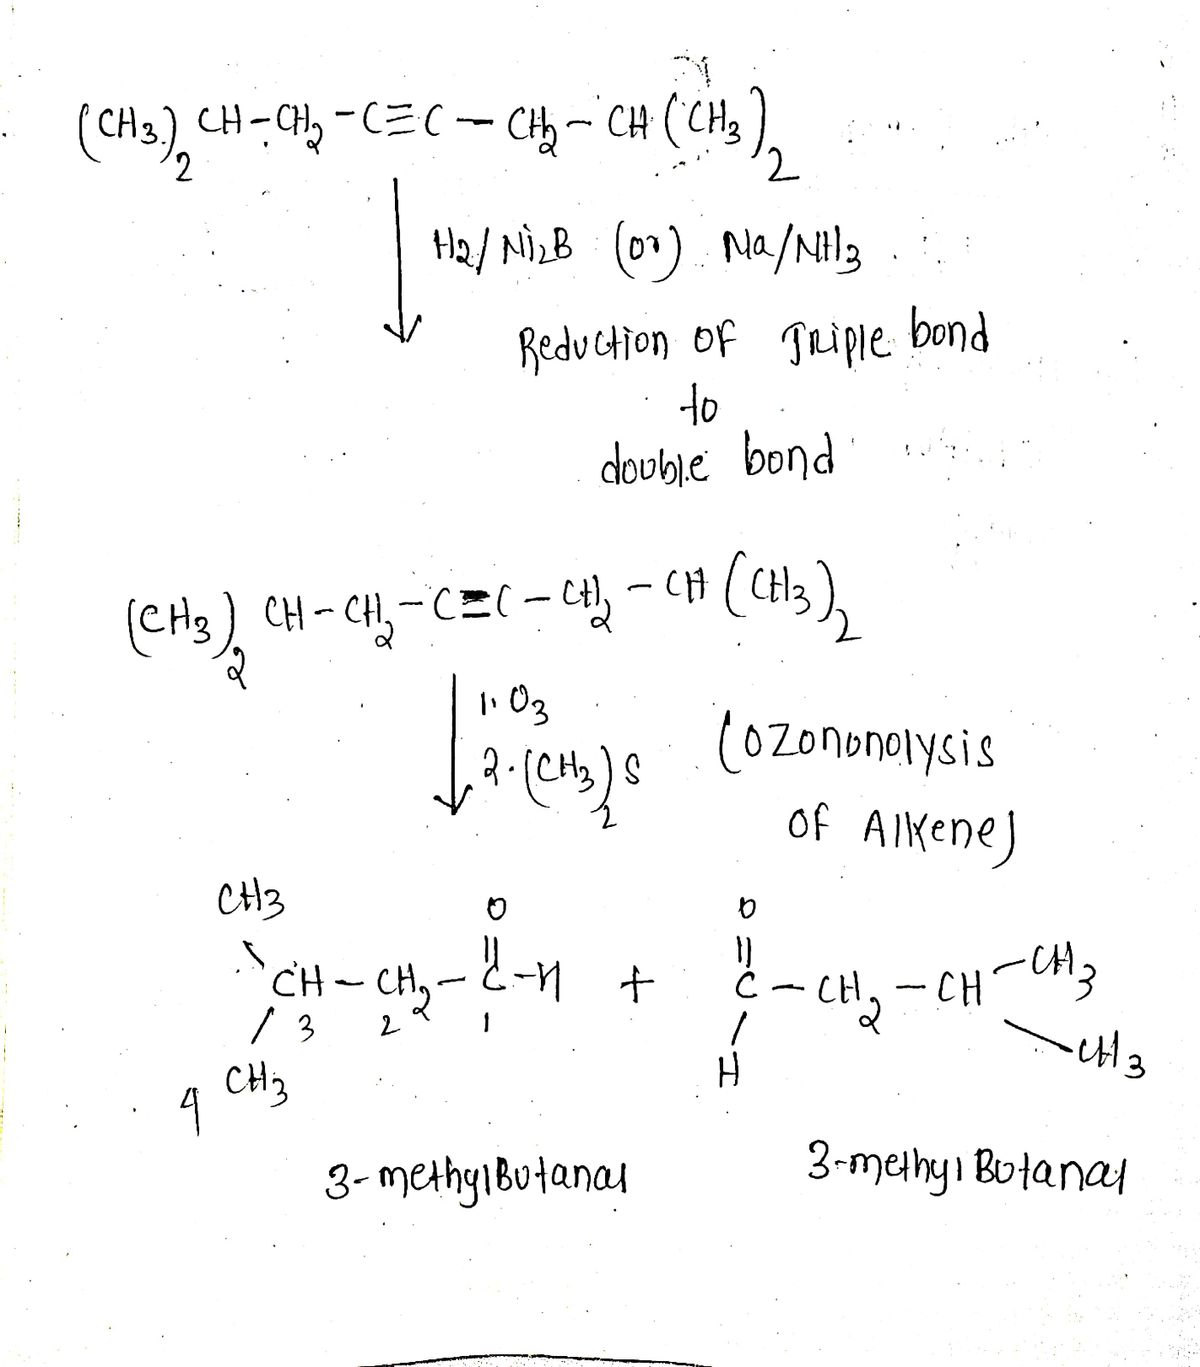 (CH3)2 CH-CH2-C≡C-CH2-CH(CH3)2
H2/Ni2B (or) Na/NH3
Reduction of Triple bond
to
double bond
(CH3)2 CH-CH2-C=C-CH2-CH(CH3)2
1. O3
2. (CH3)2S (Ozononolysis
of Alkene)
CH3 O O
CH-CH2-C-H + C-CH2-CH-CH3
3 2 1
H CH3
4 CH3
3-methylButanal 3-methylButanal